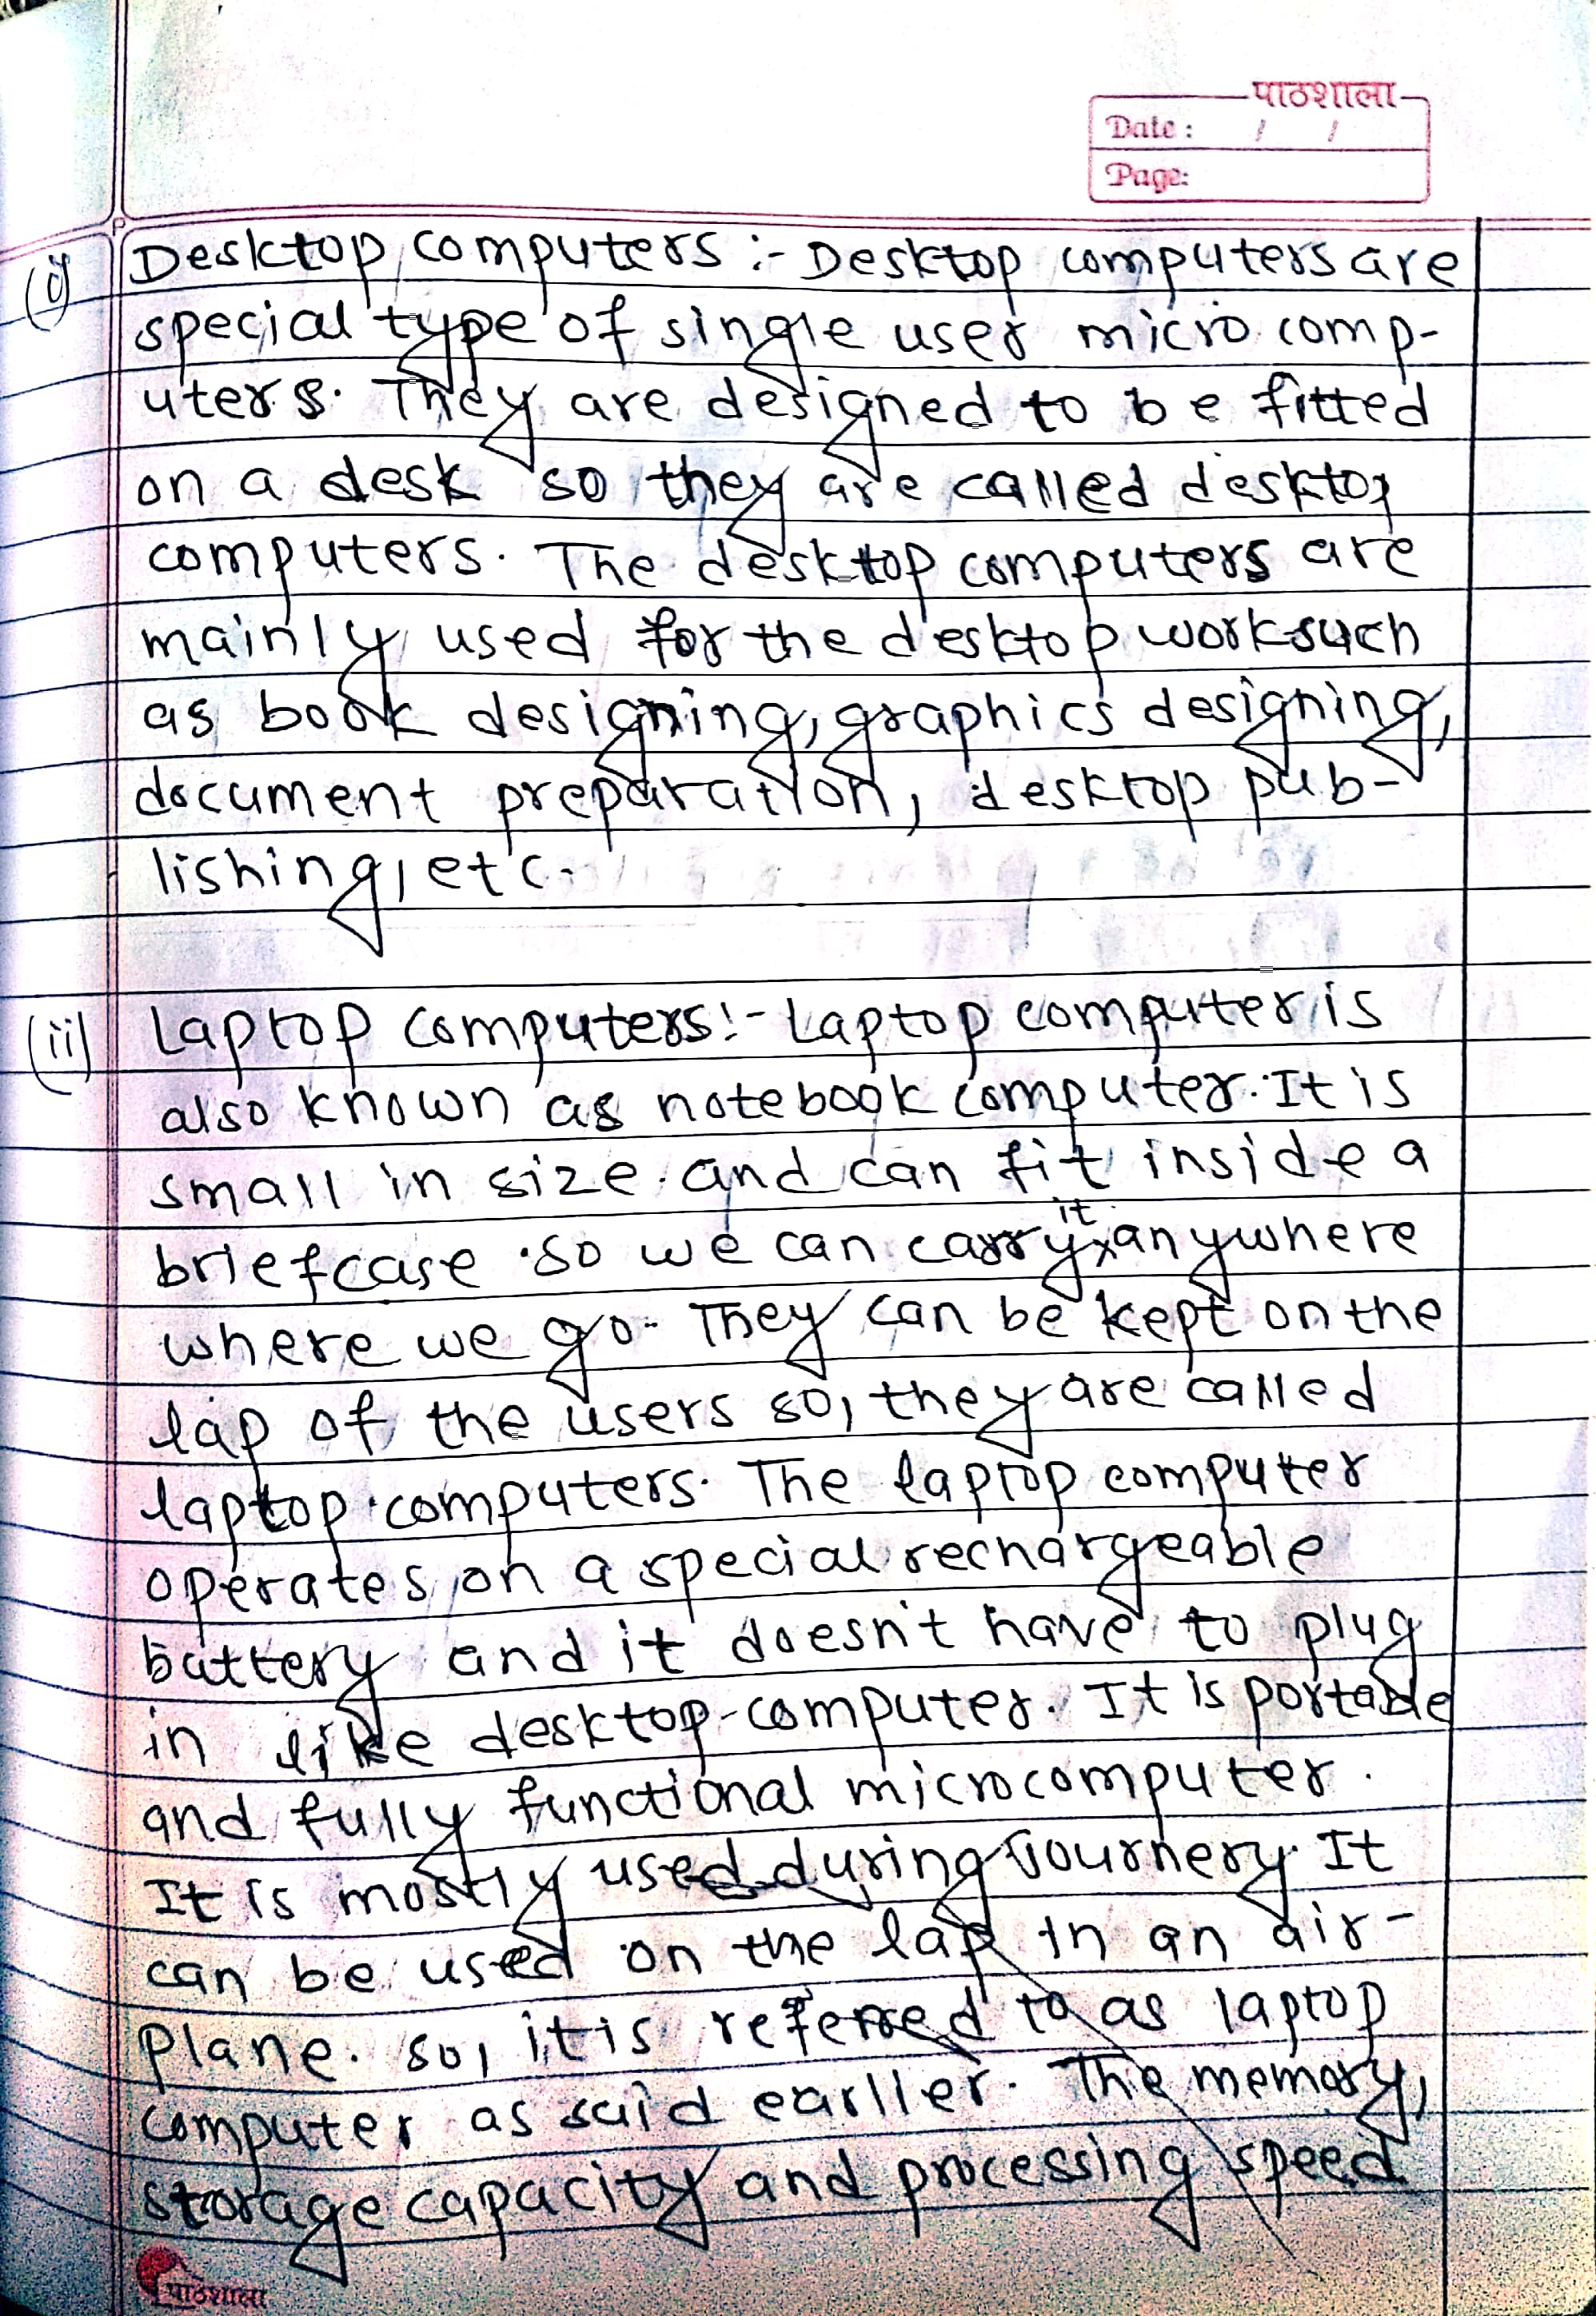 पाठशाला
Date : / /
Page:
(i) Desktop computers :- Desktop computers are
special type of single user micro comp-
uters. They are designed to be fitted
on a desk so they are called desktop
computers. The desktop computers are
mainly used for the desktop work such
as book designing, graphics designing,
document preparation, desktop pub-
lishing, etc.
(ii) Laptop computers:- Laptop computer is
also known as notebook computer. It is
small in size and can fit inside a
briefcase so we can carry it anywhere
where we go. They can be kept on the
lap of the users so, they are called
laptop computers. The laptop computer
operates on a special rechargeable
battery and it doesn't have to plug
in like desktop-computer. It is portable
and fully functional microcomputer.
It is mostly used during Journery. It
can be used on the lap in an air-
plane. so, it is referred to as laptop
computer as said earlier. The memory,
storage capacity and processing speed
पाठशाला